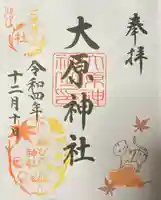 奉拝
大原神社
令和四年
十二月十日